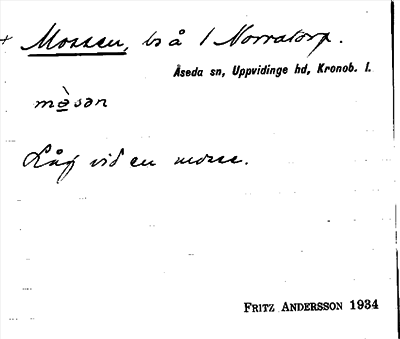 + Mossen, bs å 1 Norratorp.
Åseda sn, Uppvidinge hd, Kronob. l.
mòsən
Låg vid en mosse.
FRITZ ANDERSSON 1934